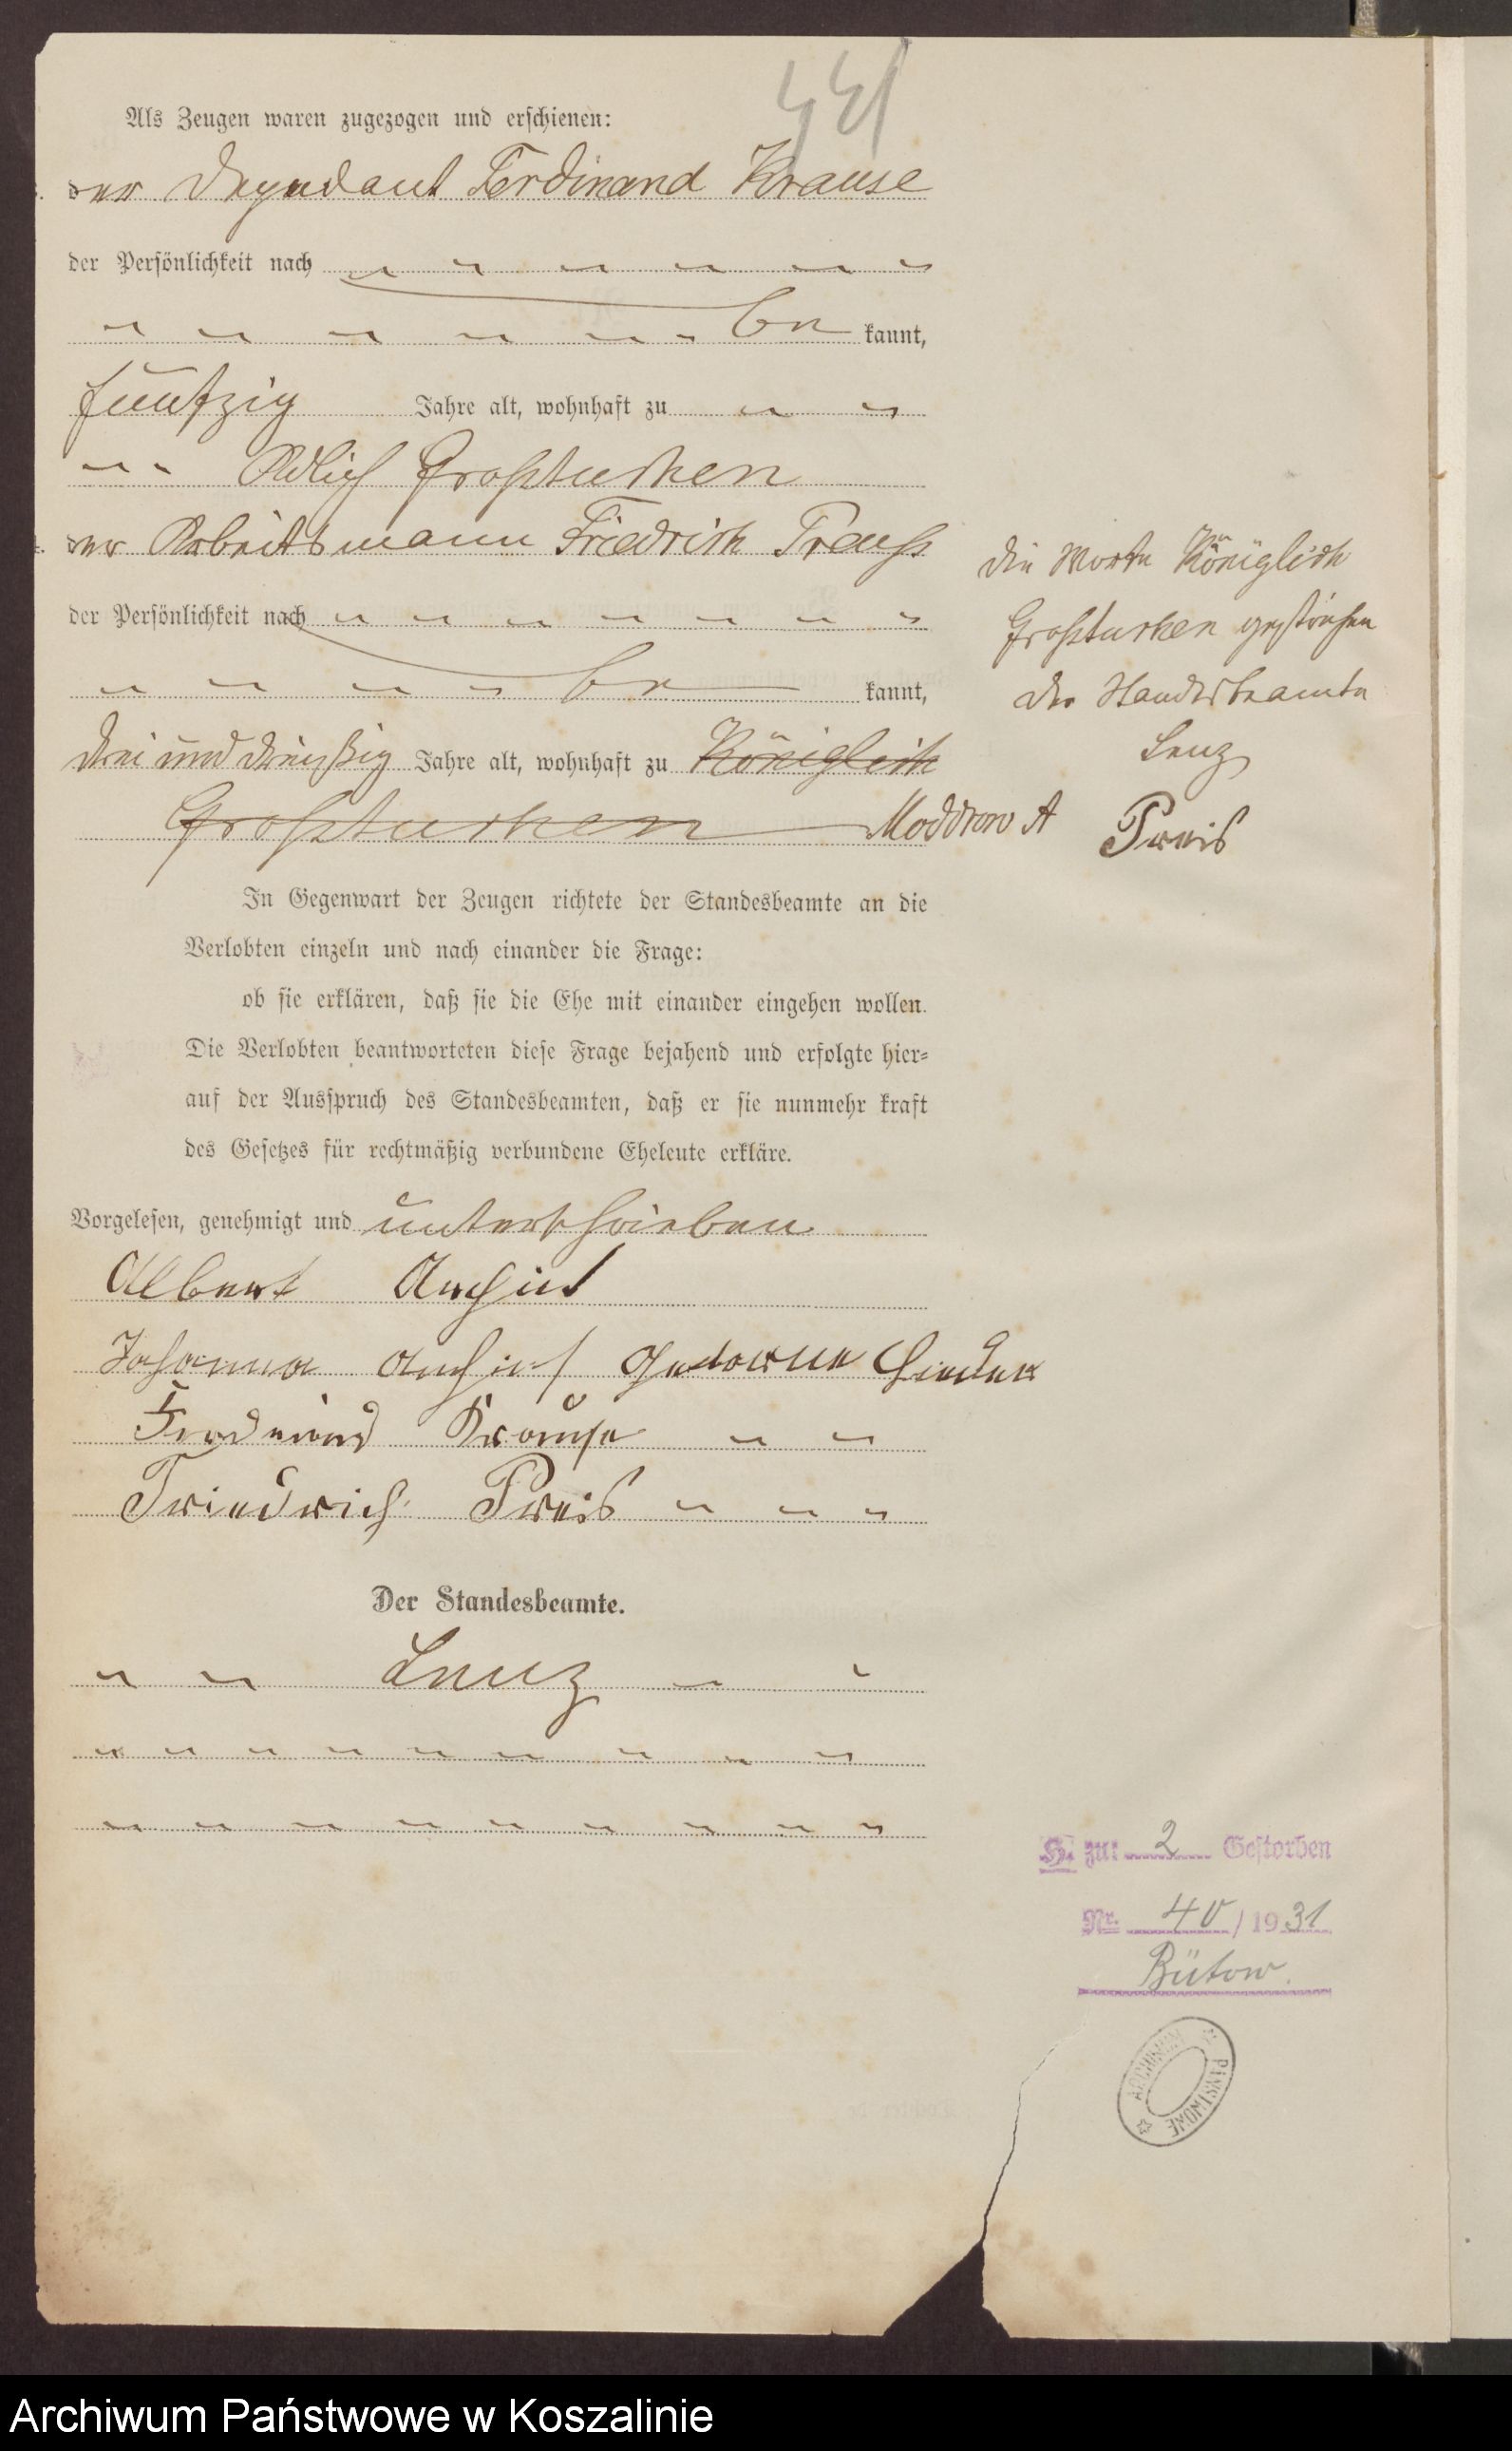 Als Zeugen waren zugezogen und erschienen:
der Ferdinand Krause
der Persönlichkeit nach
be kannt,
fünfzig Jahre alt, wohnhaft zu
Adlich Großtuchen
der Arbeitsmann Friedrich Preuß
der Persönlichkeit nach
be kannt,
drei und dreißig Jahre alt, wohnhaft zu Königlich
Großtuchen Moddrow A
Die Worte Königlich
Großtuchen gestrichen
Der Standesbeamte
Lenz
Preis
In Gegenwart der Zeugen richtete der Standesbeamte an die
Verlobten einzeln und nach einander die Frage:
ob sie erklären, daß sie die Ehe mit einander eingehen wollen.
Die Verlobten beantworteten diese Frage bejahend und erfolgte hier=
auf der Ausspruch des Standesbeamten, daß er sie nunmehr kraft
des Gesetzes für rechtmäßig verbundene Eheleute erkläre.
Vorgelesen, genehmigt und unterschrieben
Albert
Johanna
Ferdinand Krause
Friedrich Preis
Der Standesbeamte.
Lenz
H. zu: 2 Gestorben
Nr. 40 / 1931
Bütow.
ARCHIWUM PAŃSTWOWE
Archiwum Państwowe w Koszalinie